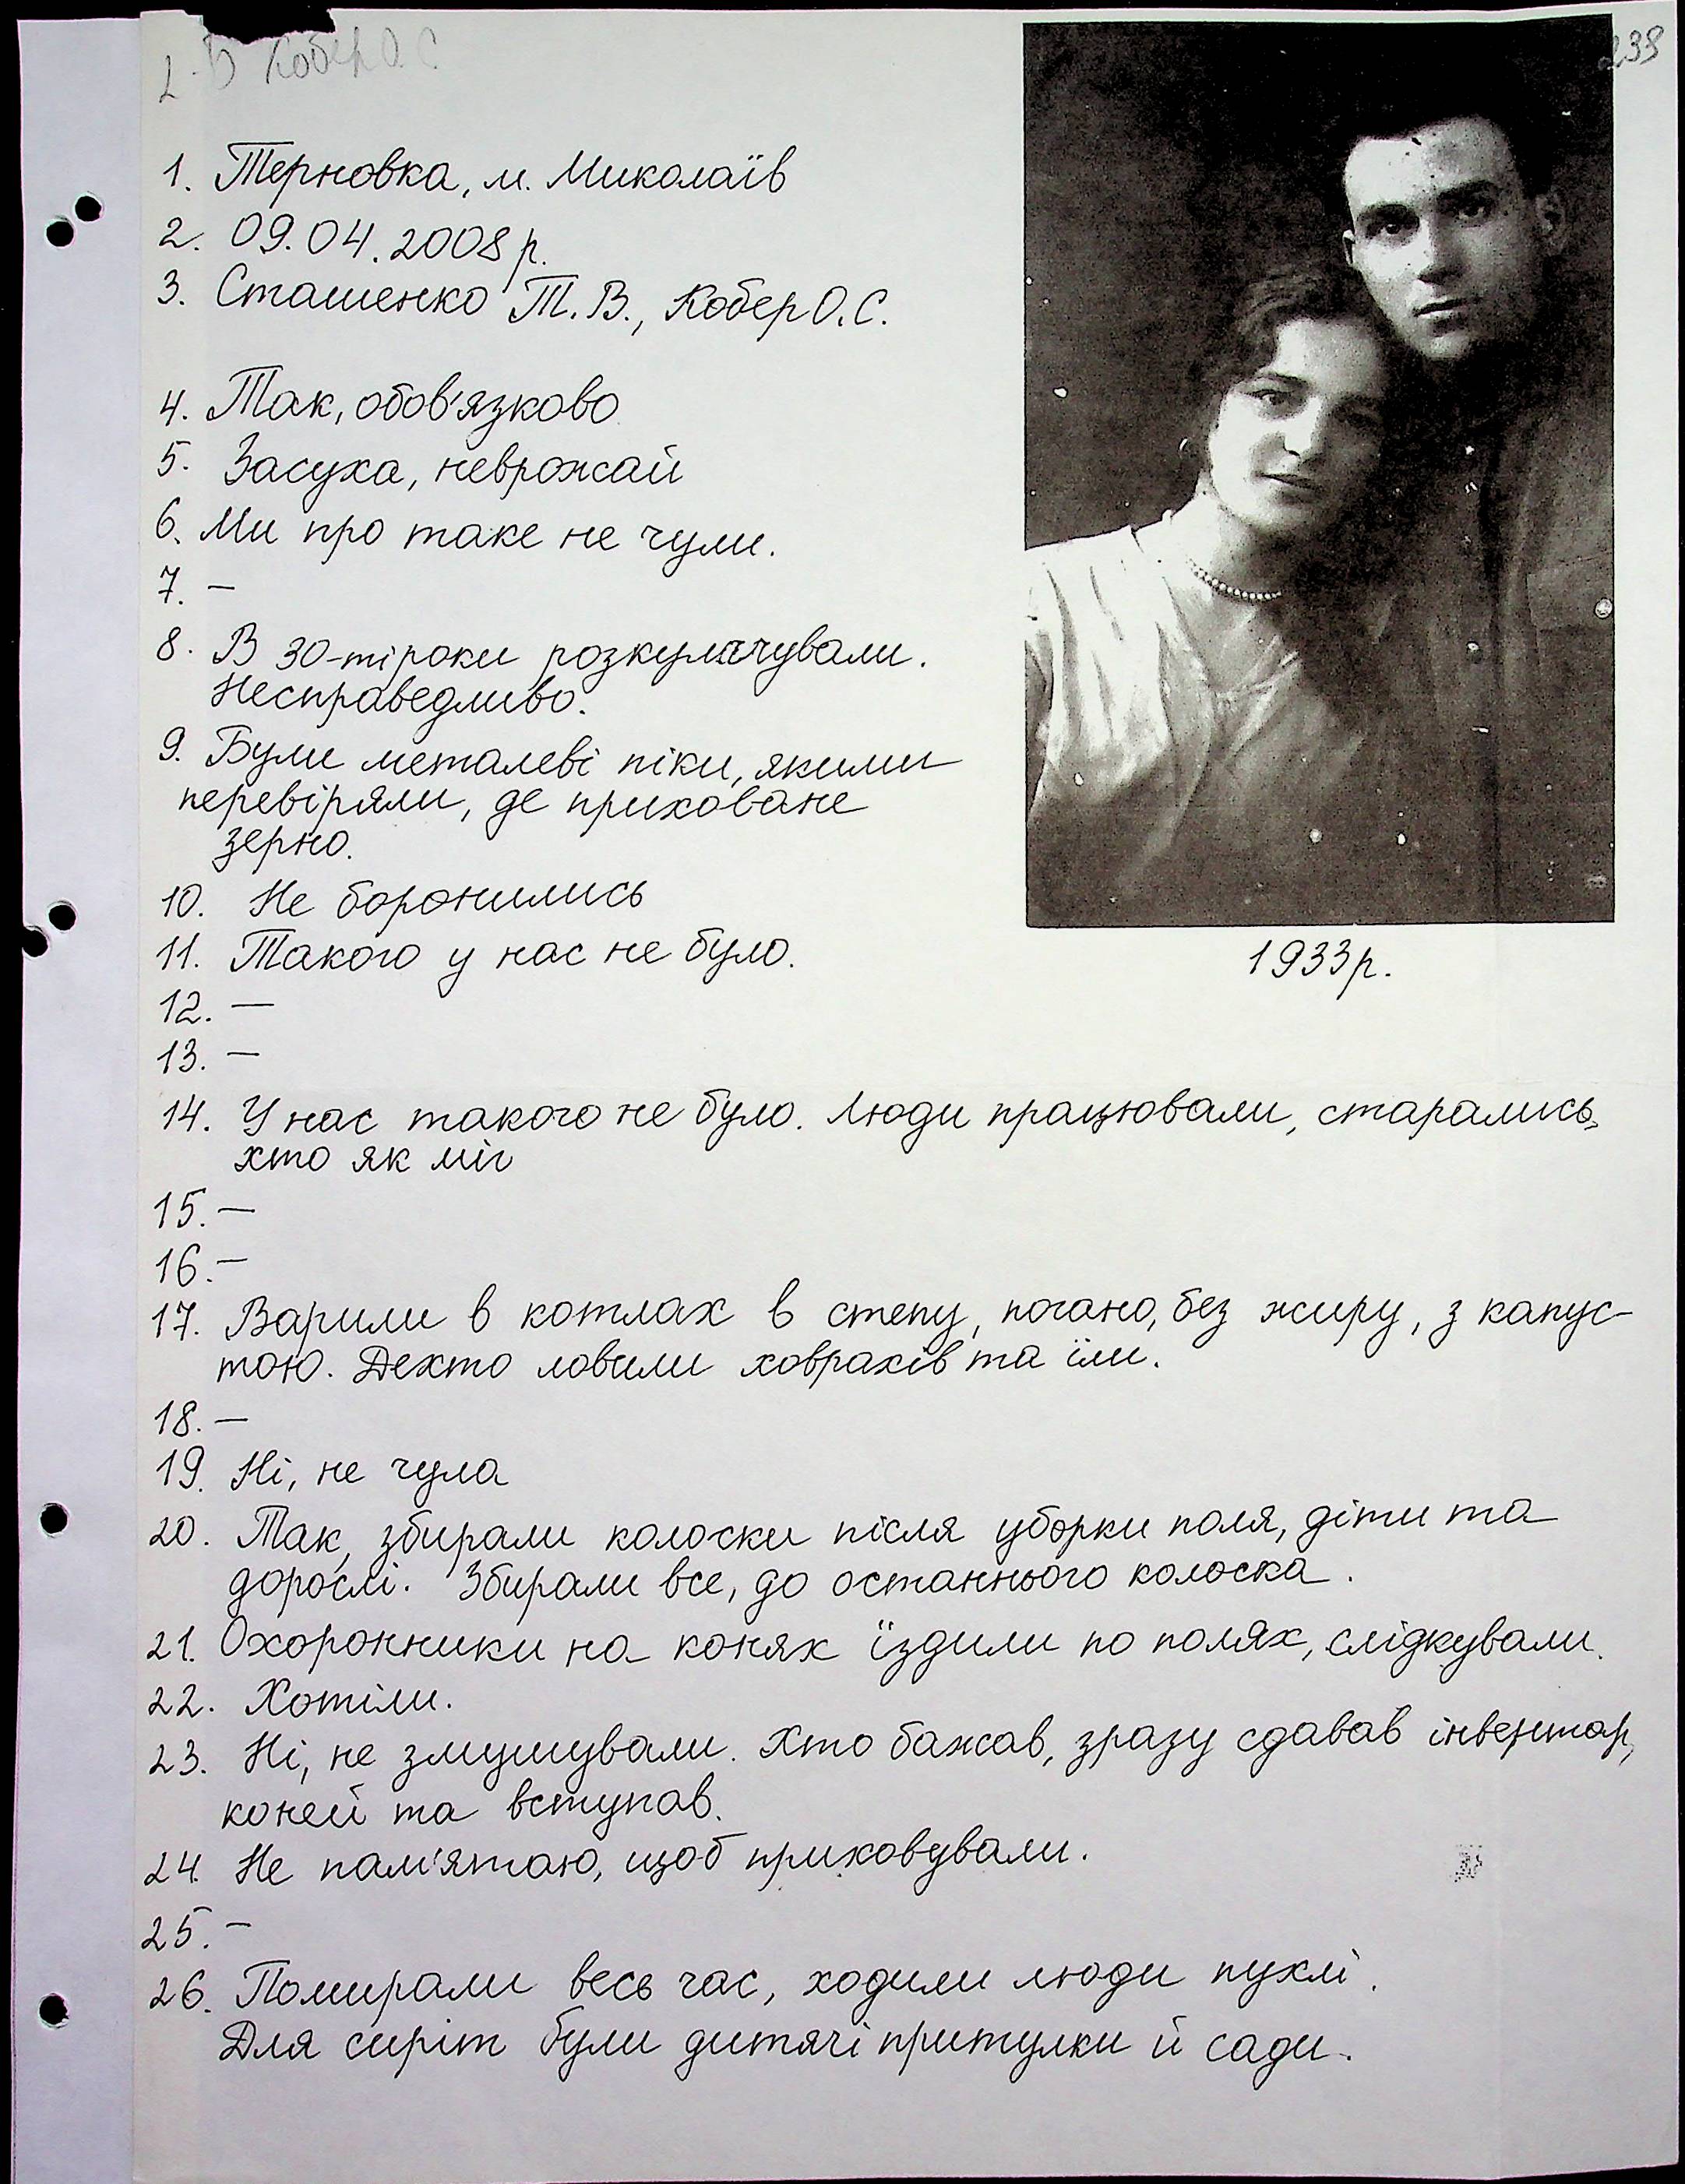 Кобер О.С
239
1. Терновка, м. Миколаїв
2. 09.04.2008 р.
3. Сташенко Т.В., Кобер О.С.
4. Так, обов'язково
5. Засуха, неврожай
6. Ми про таке не чули.
7. —
8. В 30-ті роки розкулачували.
Несправедливо.
9. Були металеві піки, якими
перевіряли, де приховане
зерно.
10. Не боронились
11. Такого у нас не було.
1933р.
12. —
13. —
14. У нас такого не було. Люди працювали, старались,
хто як міг
15. —
16. —
17. Варили в котлах в степу, погано, без жиру, з капус-
тою. Дехто ловили ховрахів та їли.
18. —
19. Ні, не чула
20. Так, збирали колоски після уборки поля, діти та
дорослі. Збирали все, до останнього колоска.
21. Охоронники на конях їздили по полях, слідкували.
22. Хотіли.
23. Ні, не змушували. Хто бажав, зразу сдавав інвентар,
коней та вступав.
24. Не пам'ятаю, щоб приховували.
25. —
26. Помирали весь час, ходили люди пухлі.
Для сиріт були дитячі притулки й сади.